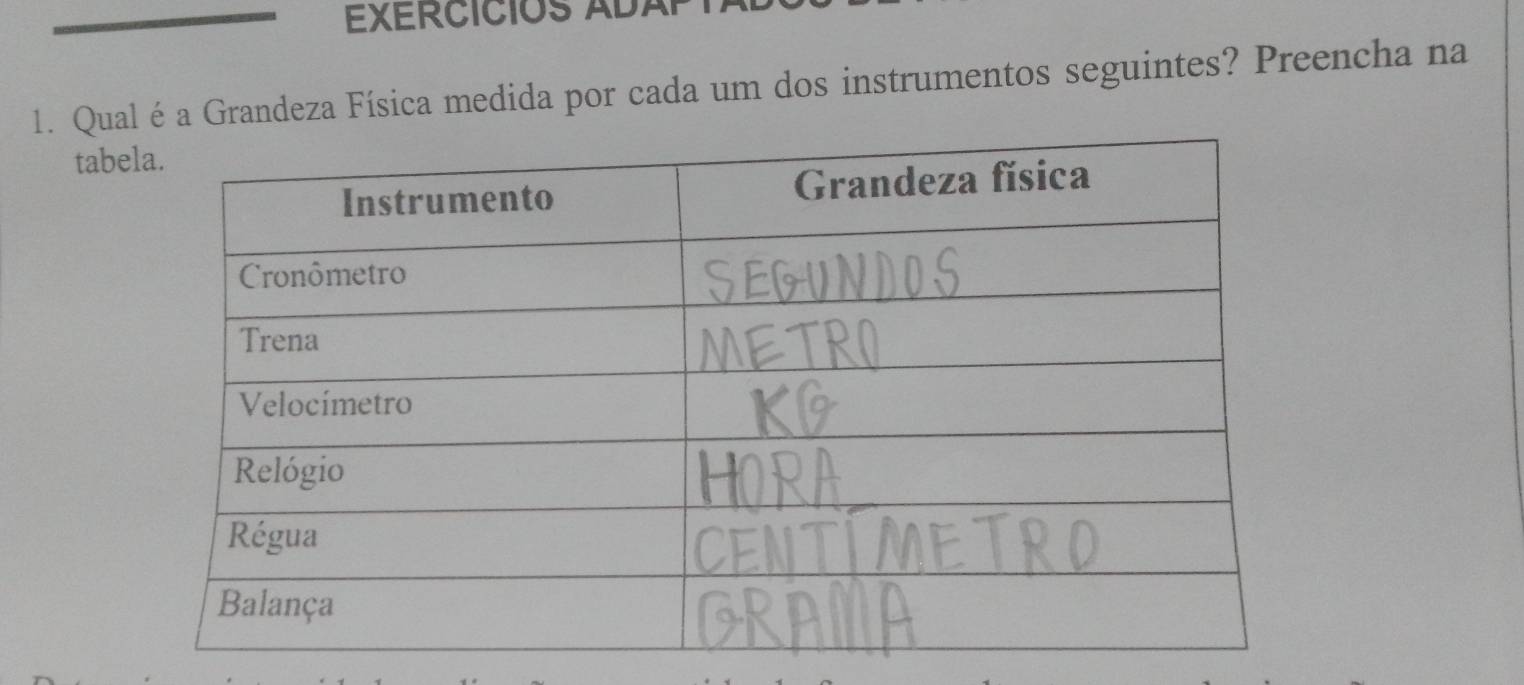 EXERCÍCIOS
1. Qual é a Grandeza Física medida por cada um dos instrumentos seguintes? Preencha na
tabela.
Instrumento Grandeza física
Cronômetro SEGUNDOS
Trena METRO
Velocímetro KG
Relógio HORA
Régua CENTÍMETRO
Balança GRAMA